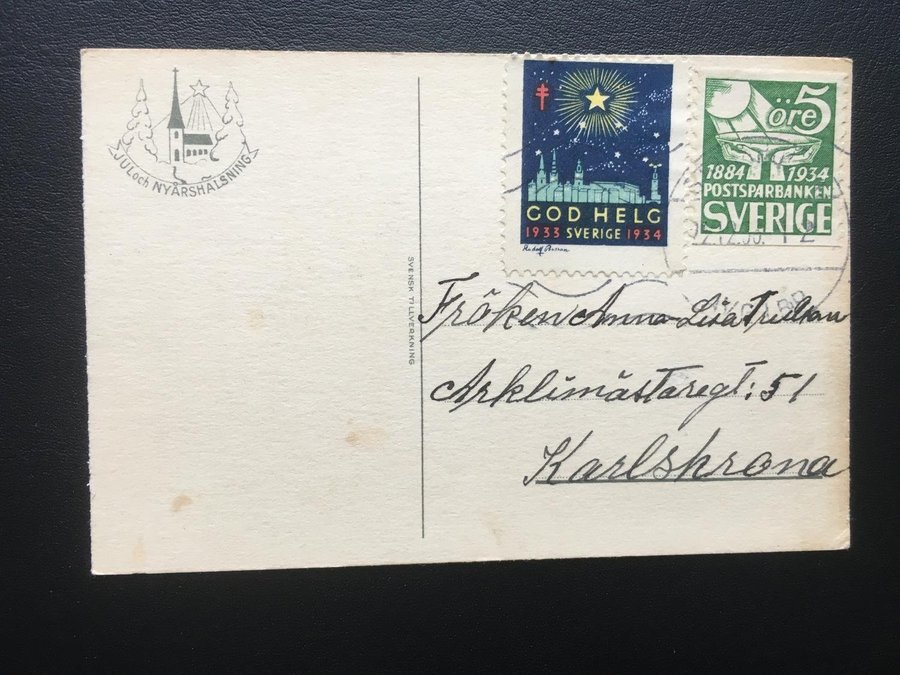 JUL och NYÅRSHÄLSNING
GOD HELG
1933 SVERIGE 1934
öre 5
1884 1934
POSTSPARBANKEN
SVERIGE
SVENSK TILLVERKNING
Fröken Anna-Lisa Trulsson
Arklimästaregt: 51
Karlskrona